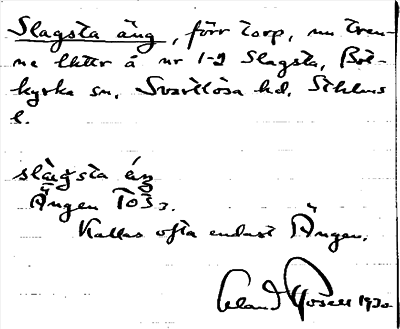 Slagsta äng, förr torp, nu tven-
ne lhtr å nr 1-2 Slagsta, Bot-
kyrka sn, Svartlösa hd, Sthlms
l.
slàgsta áŋ
Ängen
Kallas ofta endast Ängen.
Rosell 1930